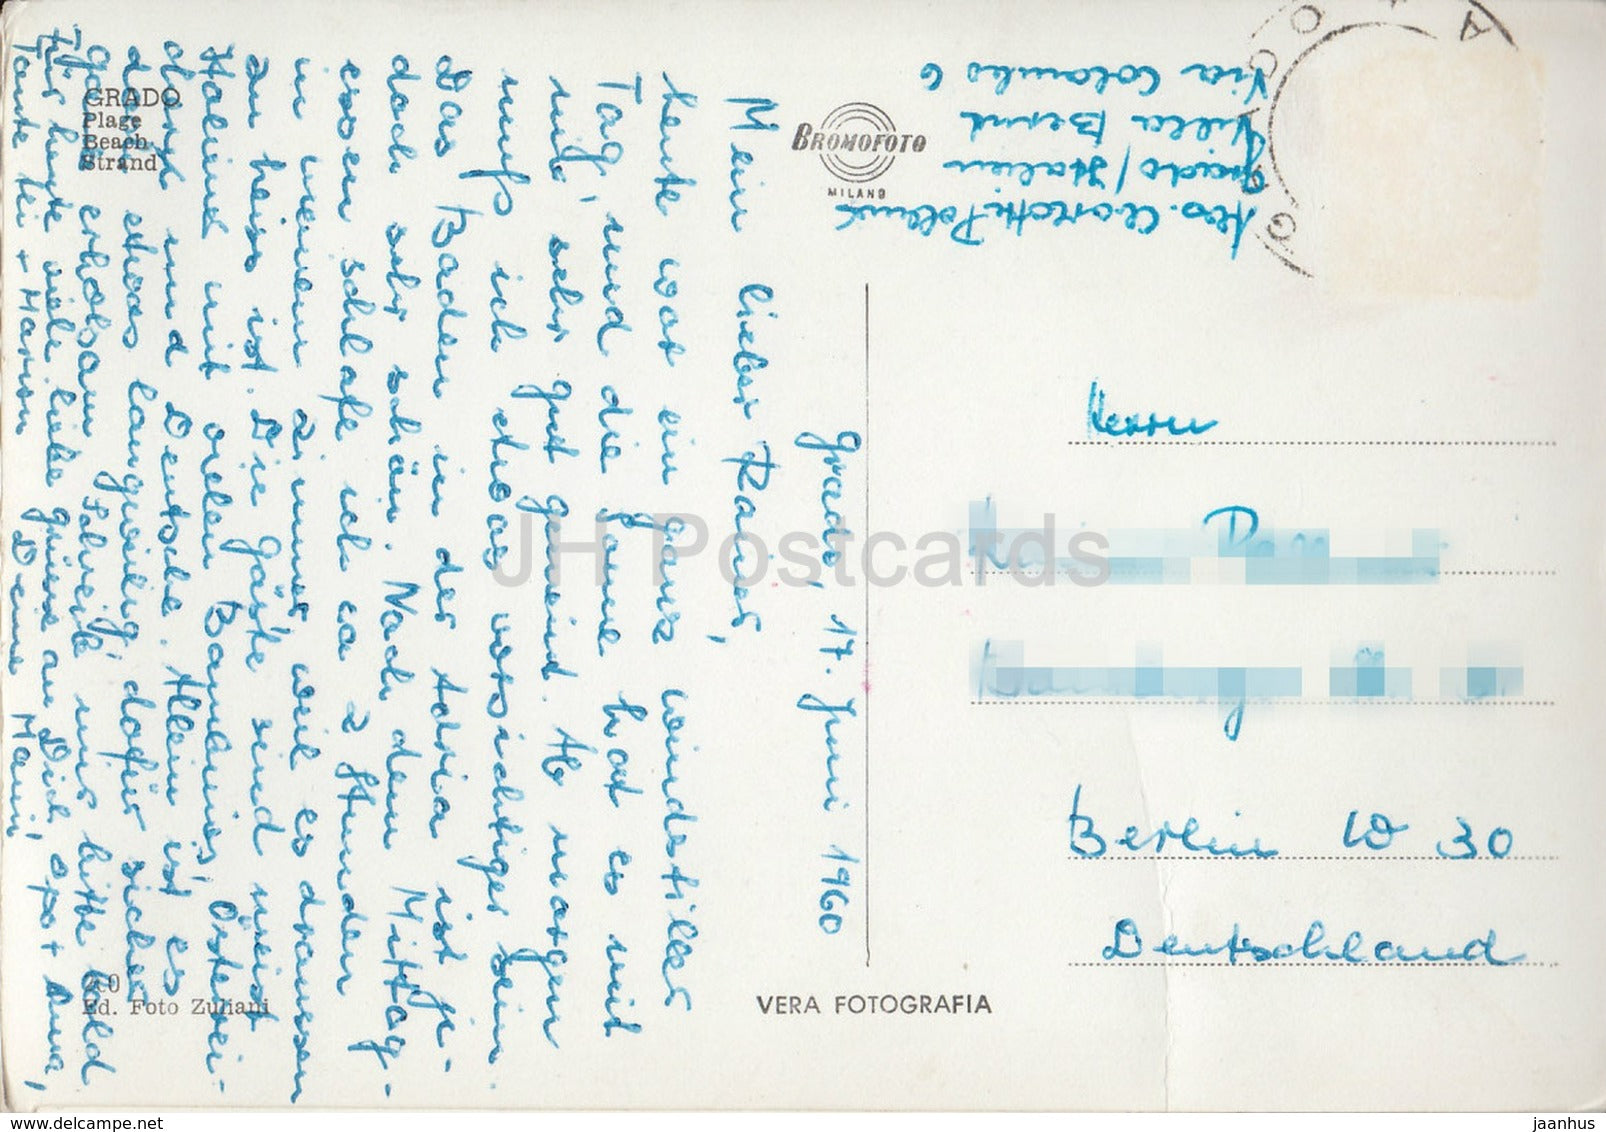 GRADO
Plage
Beach
Strand
BROMOFOTO
MILANO
Via Colombo 6
Villa Berut
Grado / Italien
Grado, 17. Juni 1960
Mein lieber Rainer,
heute war ein ganz windstiller
Tag, und die Sonne hat es mit
mir sehr gut gemeint. Ab morgen
muß ich etwas vorsichtiger sein.
Das Baden in der Adria ist je-
doch sehr schön. Nach dem Mittag-
essen schlafe ich ca 2 Stunden
in meinem Zimmer, weil es draussen
zu heiss ist. Die Gäste sind meist
Italiener mit vielen Bambinis, Österrei-
cher und Deutsche. Allein ist es
doch etwas langweilig, dafür sicher
ganz erholsam. Schreibt mir bitte bald
Für heute viele liebe Grüsse an Dich, Opa + Oma,
Tante Lei + Marion Deine Mami
Herrn
Berlin W 30
Deutschland
Ed. Foto Zuliani
VERA FOTOGRAFIA
JH Postcards
delcampe.net
jaanhus